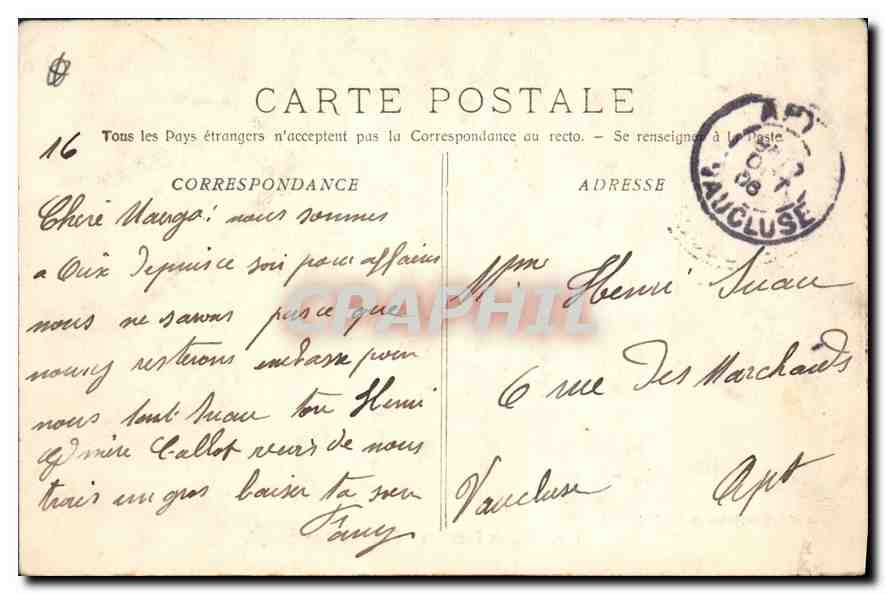 CARTE POSTALE
16
Tous les Pays étrangers n'acceptent pas la Correspondance au recto. - Se renseigner à La Poste
CORRESPONDANCE
ADRESSE
APT
OCT
06
VAUCLUSE
nous sommes
a depuis ce soir pour affaires
nous ne savons pas ce que
nous y resterons pour
nous tout Suau ton Henri
mère Callot de nous
trois un gros baiser ta soeur
Fany
Mme Henri Suau
6 rue des Marchands
Vaucluse Apt
CPAPHIL